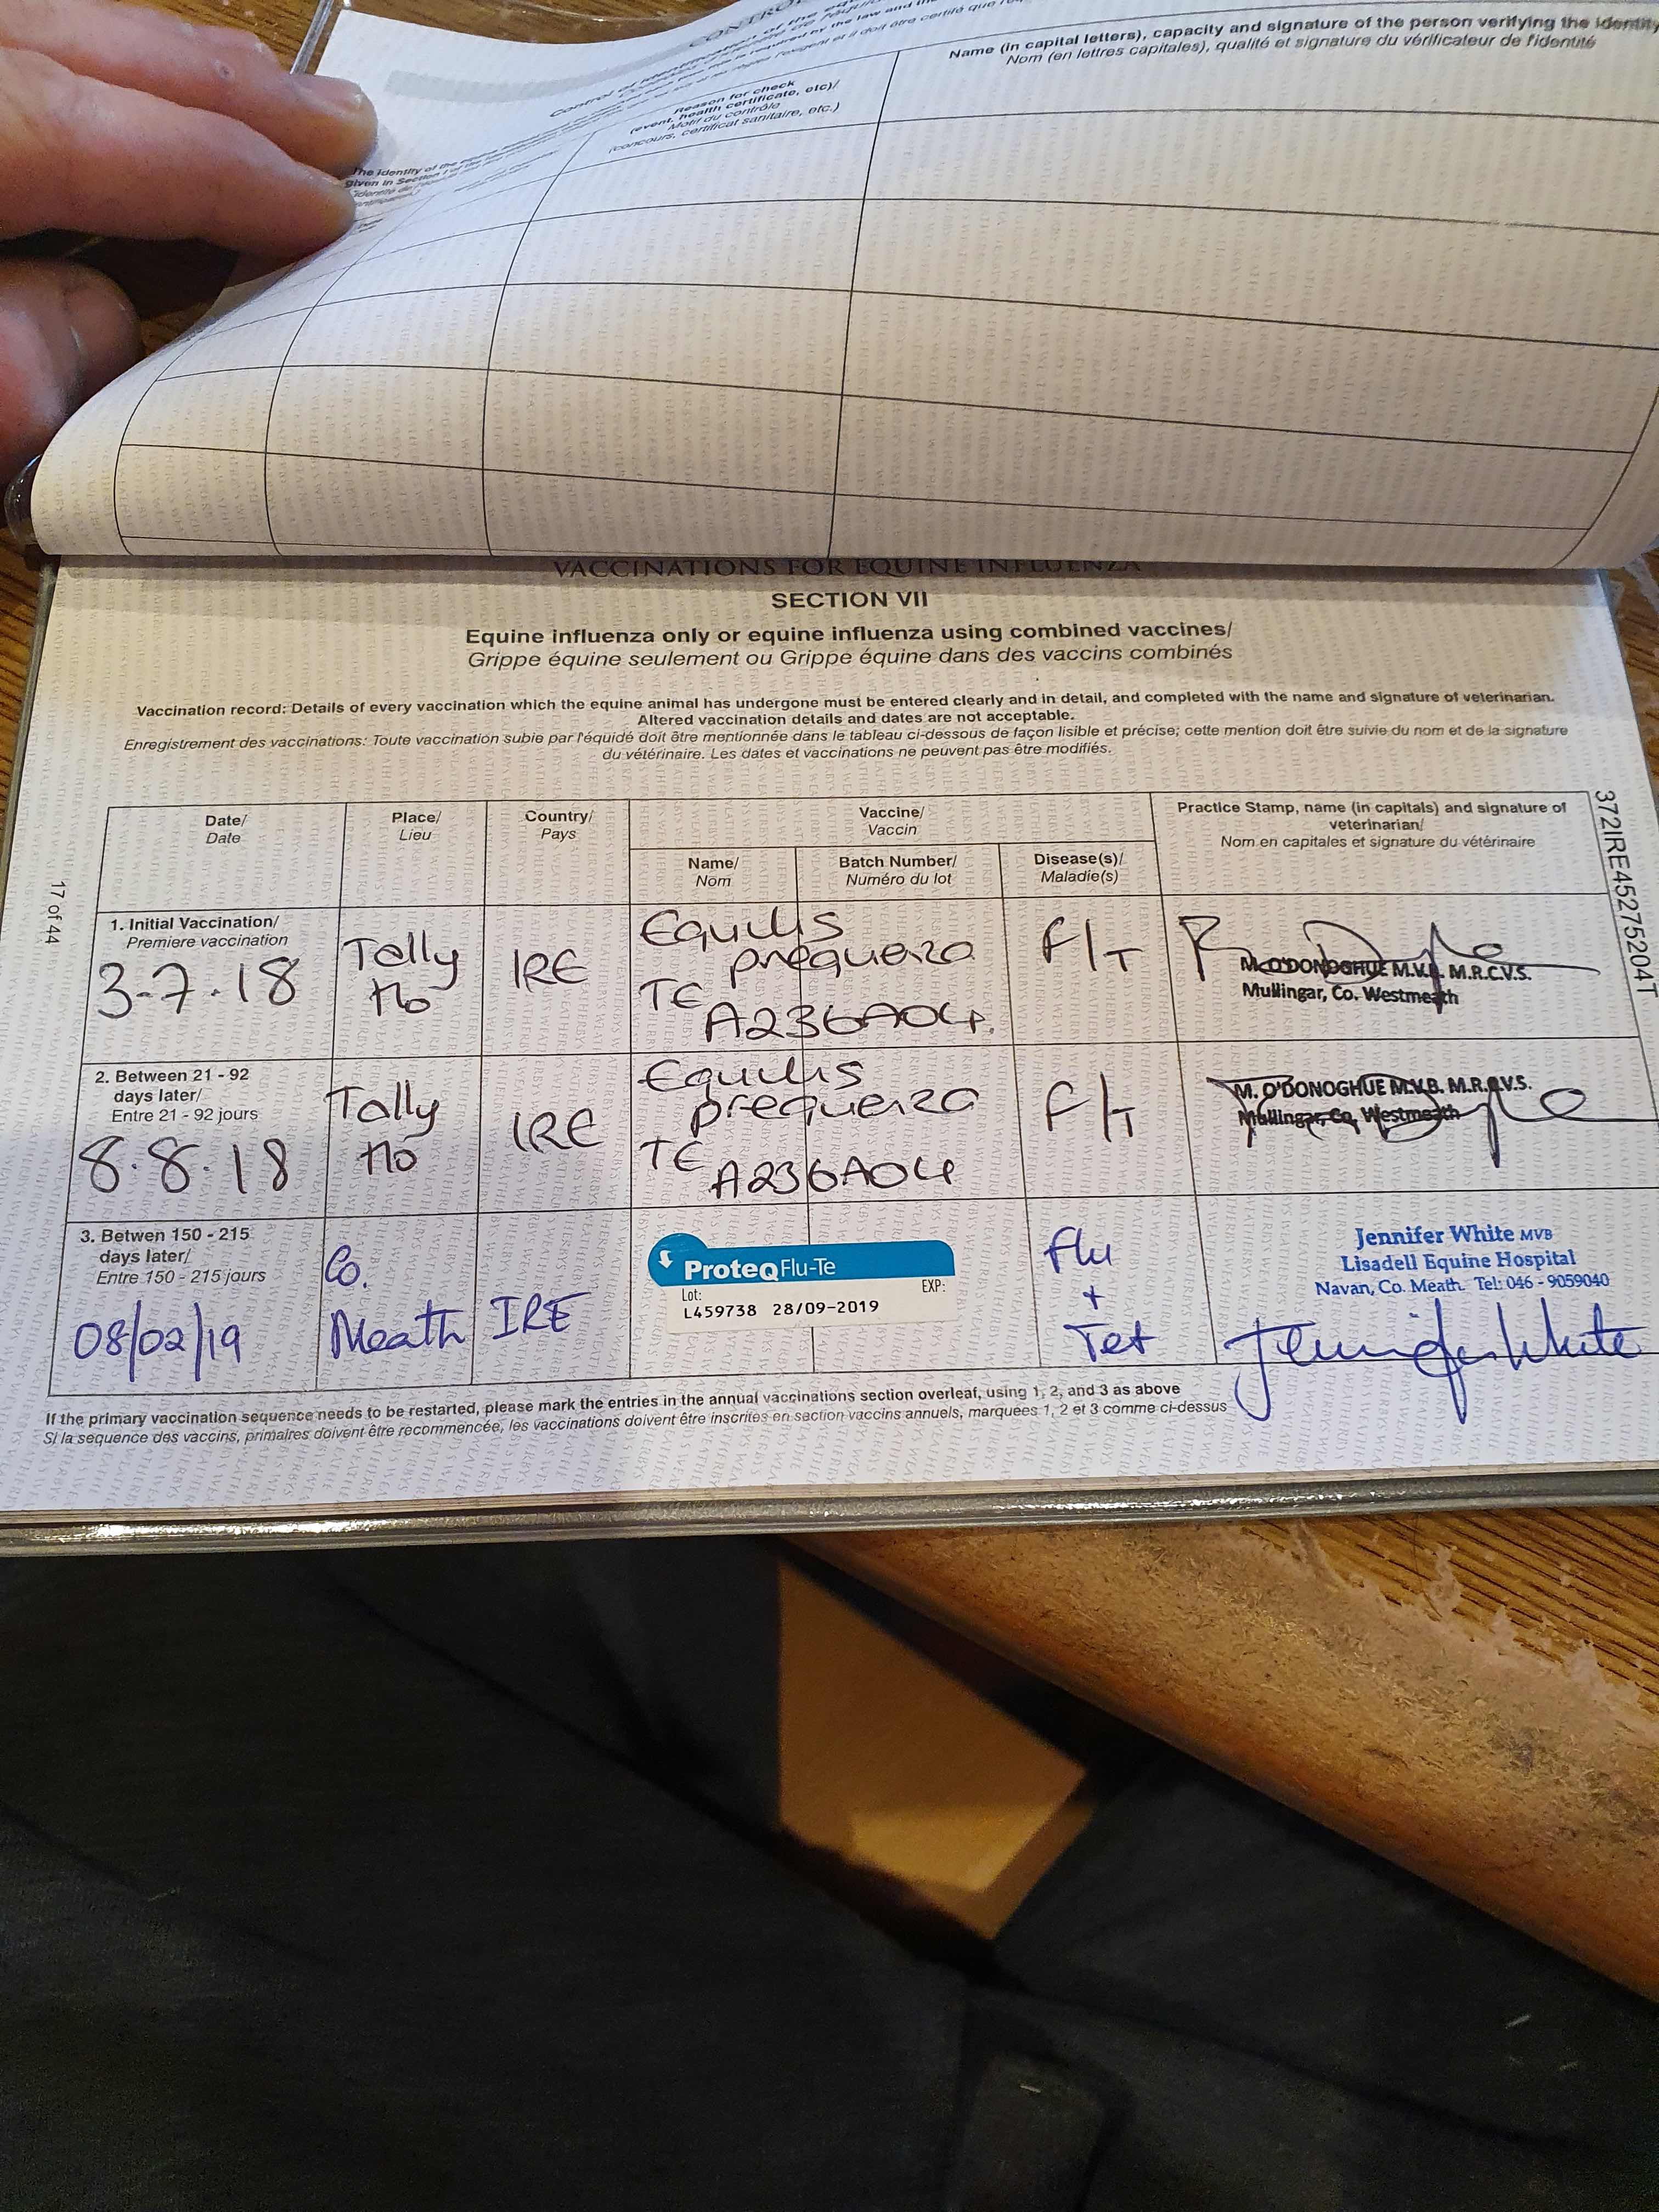 CONTRO
Name (in capital letters), capacity and signature of the person verifying the identity
Nom (en lettres capitales), qualité et signature du vérificateur de l'identité
Reason for check
(event, health certificate, etc)/
Motif du contrôle
(concours, certificat sanitaire, etc.)
The identity of the
given in Section
VACCINATIONS FOR EQUINE INFLUENZA
SECTION VII
Equine influenza only or equine influenza using combined vaccines/
Grippe équine seulement ou Grippe équine dans des vaccins combinés
Vaccination record: Details of every vaccination which the equine animal has undergone must be entered clearly and in detail, and completed with the name and signature of veterinarian.
Altered vaccination details and dates are not acceptable.
Enregistrement des vaccinations: Toute vaccination subie par l'équidé doit être mentionnée dans le tableau ci-dessous de façon lisible et précise; cette mention doit être suivie du nom et de la signature
du vétérinaire. Les dates et vaccinations ne peuvent pas être modifiés.
372IRE45275204T
17 of 44
Date/
Date
Place/
Lieu
Country/
Pays
Vaccine/
Vaccin
Name/
Nom
Batch Number/
Numéro du lot
Disease(s)/
Maladie(s)
Practice Stamp, name (in capitals) and signature of
veterinarian/
Nom en capitales et signature du vétérinaire
1. Initial Vaccination/
Premiere vaccination
3.7.18
Tally
Ho
IRE
Equilis
prequenza
TE
A236A04
F/T
M. O'DONOGHUE M.V.B. M.R.C.V.S.
Mullingar, Co. Westmeath
2. Between 21 - 92
days later/
Entre 21 - 92 jours
8.8.18
Tally
Ho
IRE
Equilis
prequenza
TE
A236A04
F/T
M. O'DONOGHUE M.V.B. M.R.C.V.S.
Mullingar, Co. Westmeath
3. Betwen 150 - 215
days later/
Entre 150 - 215 jours
08/02/19
Co.
Meath
IRE
ProteqFlu-Te
Lot:
EXP:
L459738 28/09-2019
Flu
+
Tet
Jennifer White MVB
Lisadell Equine Hospital
Navan, Co. Meath. Tel: 046 - 9059040
Jennifer White
If the primary vaccination sequence needs to be restarted, please mark the entries in the annual vaccinations section overleaf, using 1, 2, and 3 as above
Si la sequence des vaccins, primaires doivent être recommencée, les vaccinations doivent être inscrites en section vaccins annuels, marquees 1, 2 et 3 comme ci-dessus